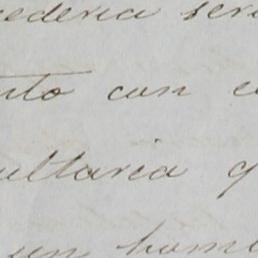 cederia ser
nto con
ultaria q
un hom